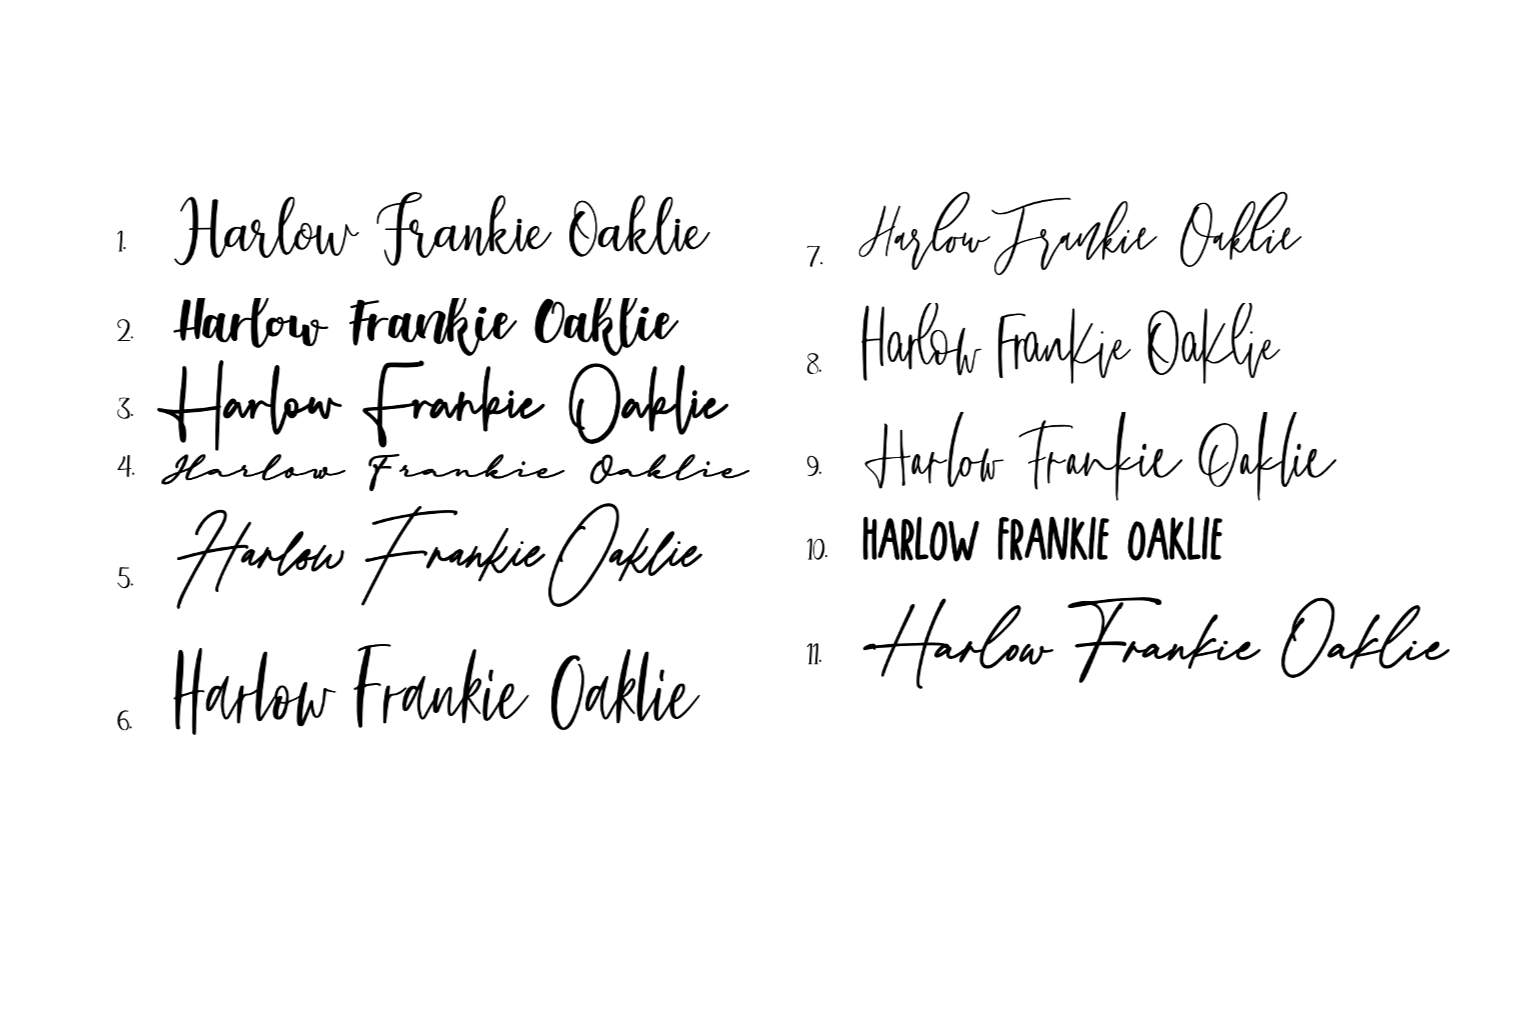 1. Harlow Frankie Oaklie
2. Harlow Frankie Oaklie
3. Harlow Frankie Oaklie
4. Harlow Frankie Oaklie
5. Harlow Frankie Oaklie
6. Harlow Frankie Oaklie
7. Harlow Frankie Oaklie
8. Harlow Frankie Oaklie
9. Harlow Frankie Oaklie
10. HARLOW FRANKIE OAKLIE
11. Harlow Frankie Oaklie